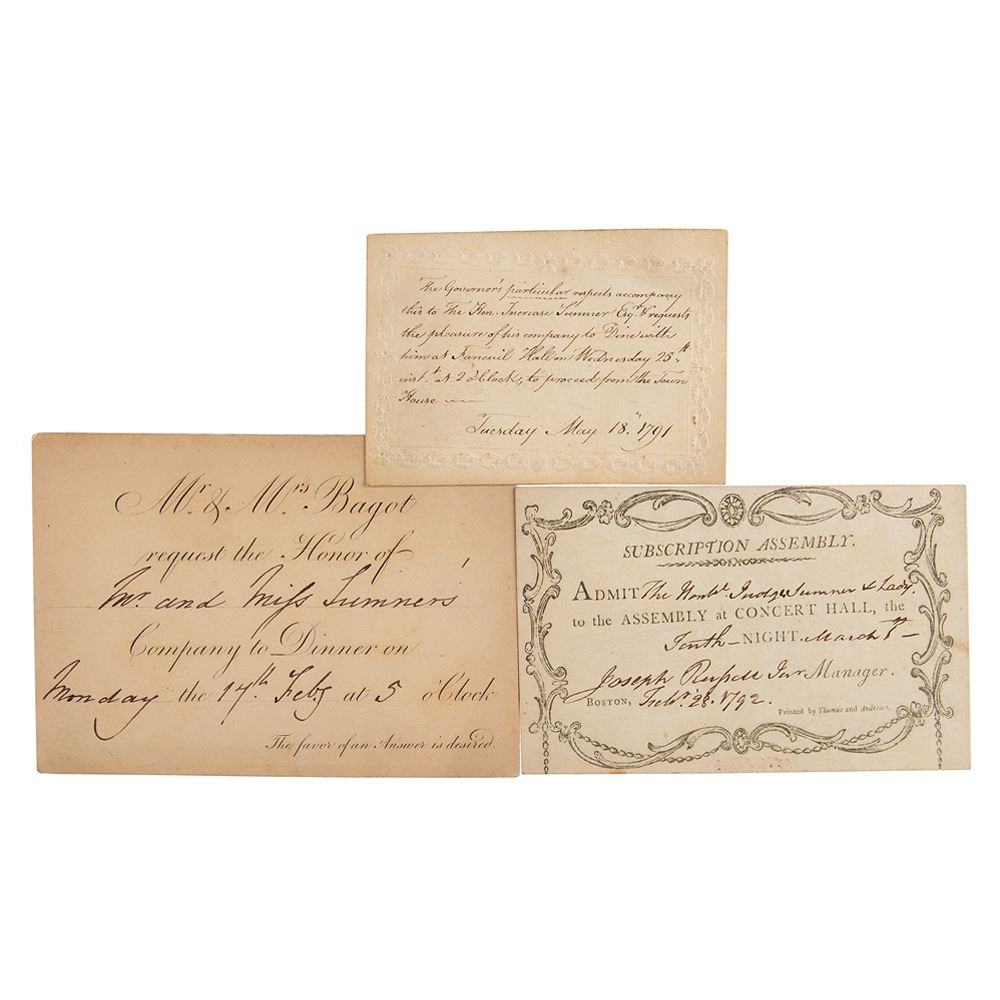 The Governor's particular respects accompany
this to The Hon. Increase Sumner Esqr. & requests
the pleasure of his company to Dine with
him at Faneuil Hall on Wednesday 25th
inst. at 2 oClock, to proceed from the Town
House
Tuesday May 18. 1791
Mr. & Mrs. Bagot
request the Honor of
Mr. and Miss Sumner's
Company to Dinner on
Monday the 17th. Feby at 5 o'Clock
The favor of an Answer is desired.
SUBSCRIPTION ASSEMBLY.
ADMIT The Honble. Judge Sumner & Lady.
to the ASSEMBLY at CONCERT HALL, the
Tenth NIGHT. March
Joseph Russell Junr Manager.
BOSTON, Feby. 28. 1792.
Printed by Thomas and Andrews.